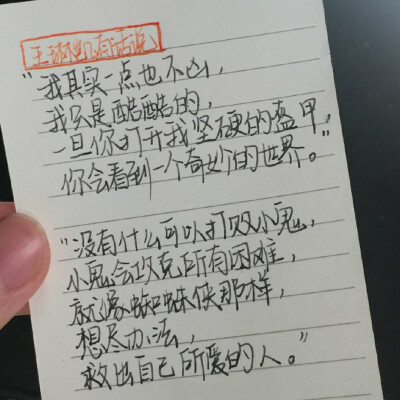 王琳凯有话说
“我其实一点也不凶，
我只是酷酷的，
一旦你打开我坚硬的盔甲，
你会看到一个奇妙的世界。”
“没有什么可以打败小鬼，
小鬼会攻克所有困难，
就像蜘蛛侠那样，
想尽办法，
救出自己所爱的人。”